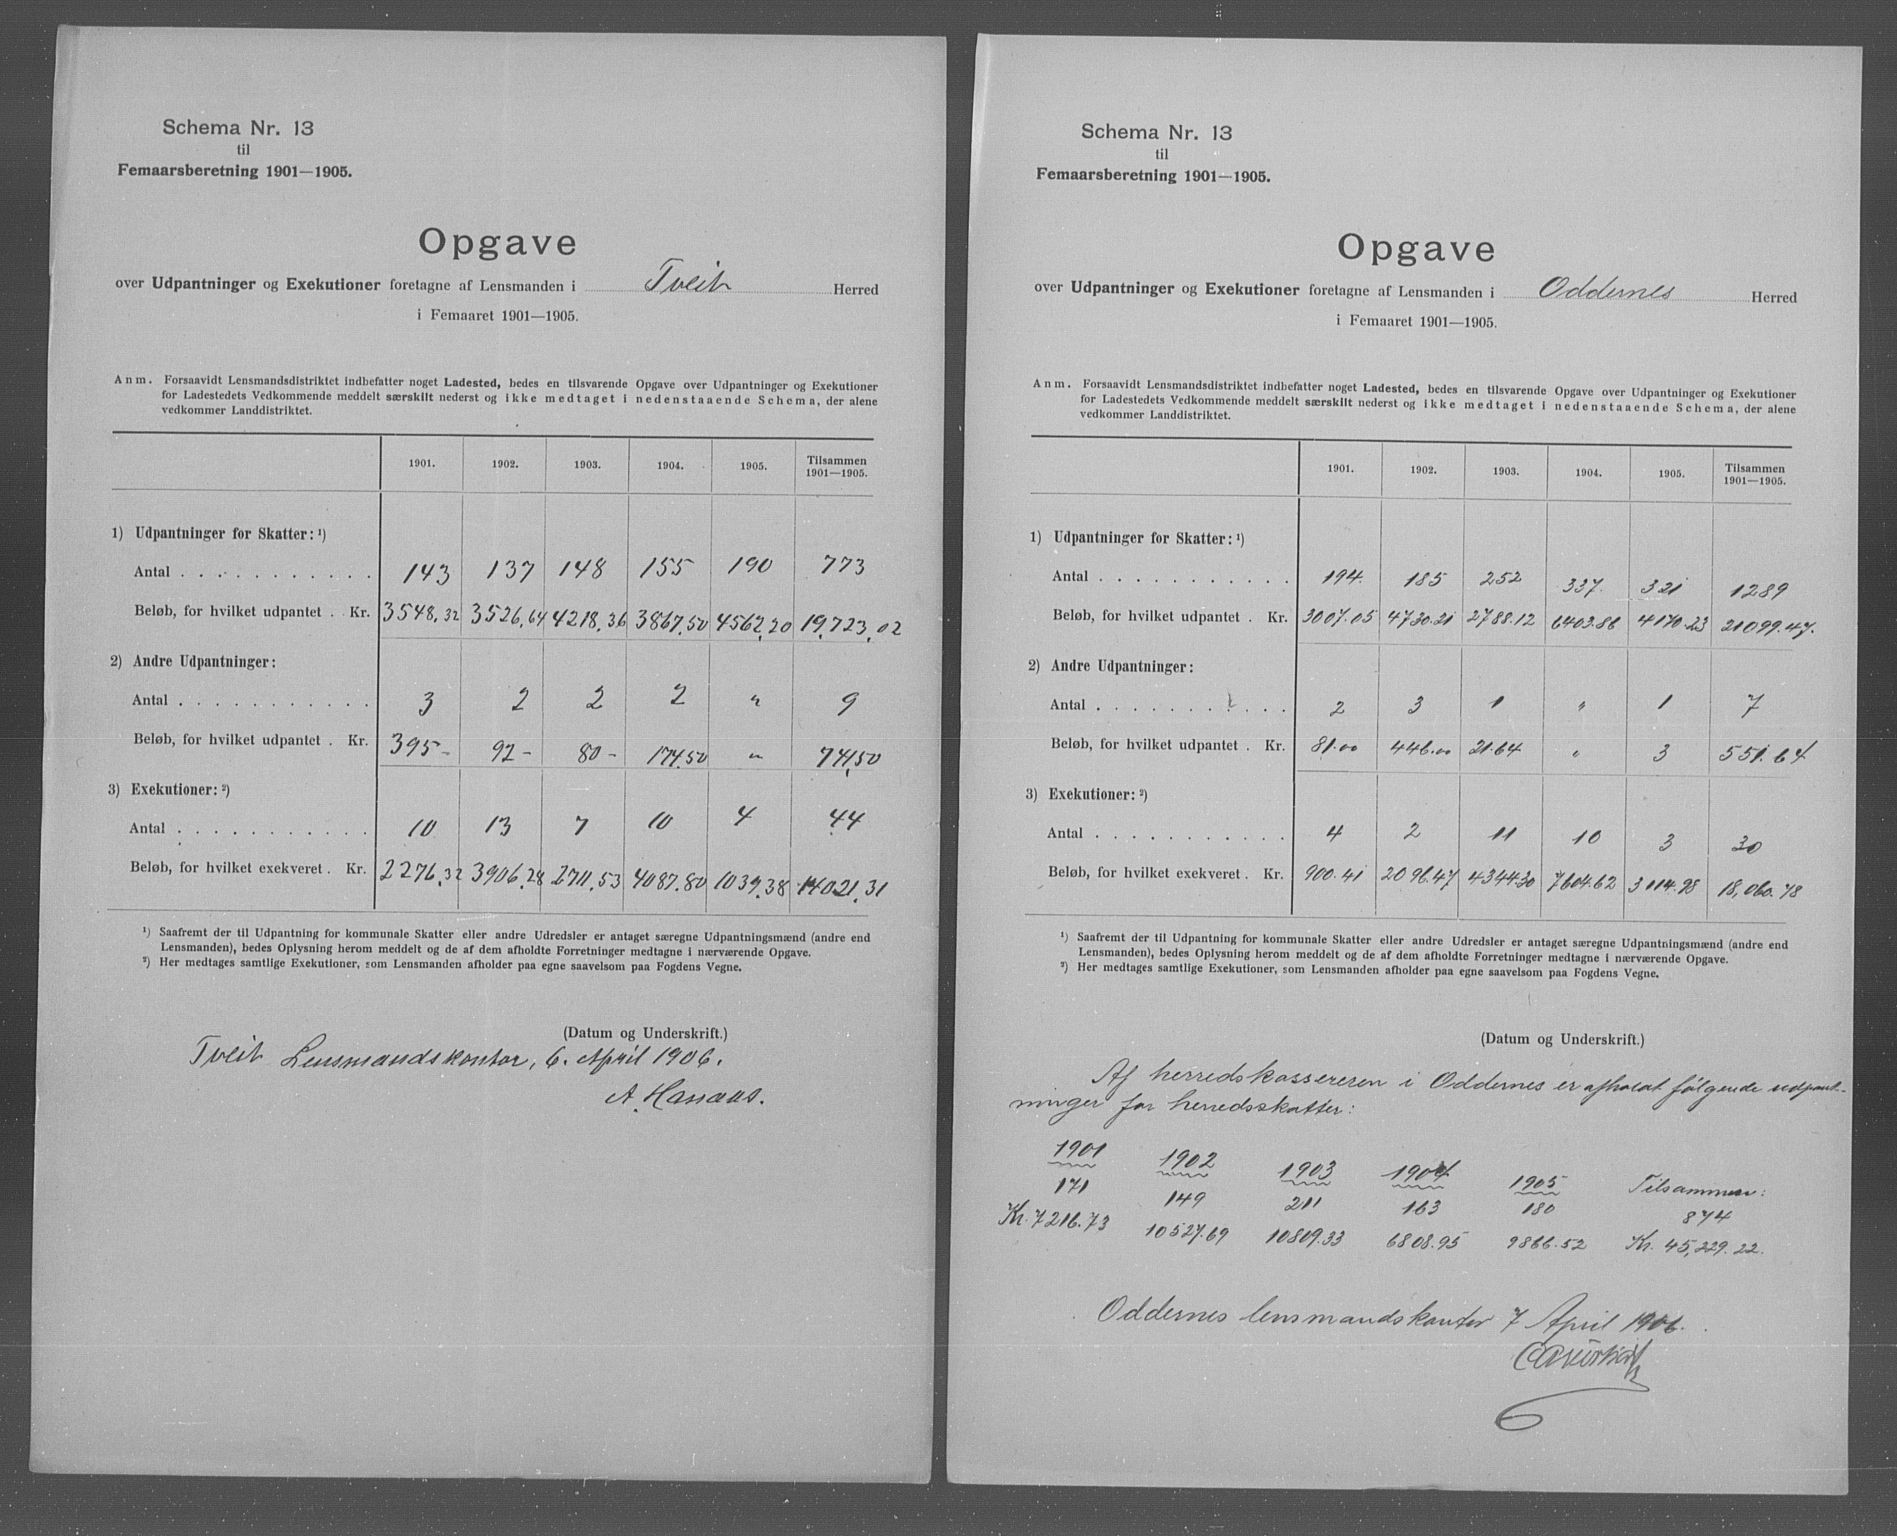 Schema Nr. 13
til
Femaarsberetning 1901—1905.
Opgave
over Udpantninger og Exekutioner foretagne af Lensmanden i Tveit Herred
i Femaaret 1901—1905.
Anm. Forsaavidt Lensmandsdistriktet indbefatter noget Ladested, bedes en tilsvarende Opgave over Udpantninger og Exekutioner
for Ladestedets Vedkommende meddelt særskilt nederst og ikke medtaget i nedenstaaende Schema, der alene
vedkommer Landdistriktet.
1901. 1902. 1903. 1904. 1905. Tilsammen 1901—1905.
1) Udpantninger for Skatter: ¹)
Antal . . . . . . . . . . . 143 137 148 155 190 773
Beløb, for hvilket udpantet . Kr. 3548,32 3526,64 4218,36 3867,50 4562,20 19,723,02
2) Andre Udpantninger:
Antal . . . . . . . . . . . 3 2 2 2 " 9
Beløb, for hvilket udpantet . Kr. 395- 92- 80- 174.50 " 741,50
3) Exekutioner: ²)
Antal . . . . . . . . . . . 10 13 7 10 4 44
Beløb, for hvilket exekveret . Kr. 2276,32 3906,28 2711,53 4087.80 1039,38 14021,31
¹) Saafremt der til Udpantning for kommunale Skatter eller andre Udredsler er antaget særegne Udpantningsmænd (andre end
Lensmanden), bedes Oplysning herom meddelt og de af dem afholdte Forretninger medtagne i nærværende Opgave.
²) Her medtages samtlige Exekutioner, som Lensmanden afholder paa egne saavelsom paa Fogdens Vegne.
(Datum og Underskrift.)
Tveit Lensmandskontor, 6. April 1906.
A.
Schema Nr. 13
til
Femaarsberetning 1901—1905.
Opgave
over Udpantninger og Exekutioner foretagne af Lensmanden i Oddernes Herred
i Femaaret 1901—1905.
Anm. Forsaavidt Lensmandsdistriktet indbefatter noget Ladested, bedes en tilsvarende Opgave over Udpantninger og Exekutioner
for Ladestedets Vedkommende meddelt særskilt nederst og ikke medtaget i nedenstaaende Schema, der alene
vedkommer Landdistriktet.
1901. 1902. 1903. 1904. 1905. Tilsammen 1901—1905.
1) Udpantninger for Skatter: ¹)
Antal . . . . . . . . . . . 194. 185 252 337. 321 1289
Beløb, for hvilket udpantet . Kr. 3007.05 4730.21 2788.12 6403.86 4170.23 21099.47.
2) Andre Udpantninger:
Antal . . . . . . . . . . . 2 3 1 " 1 7
Beløb, for hvilket udpantet . Kr. 81.00 446.00 21.64 " 3 551.64
3) Exekutioner: ²)
Antal . . . . . . . . . . . 4 2 11 10 3 30
Beløb, for hvilket exekveret . Kr. 900.41 2096.47 4344.30 7604.62 3114.98 18,060.78
¹) Saafremt der til Udpantning for kommunale Skatter eller andre Udredsler er antaget særegne Udpantningsmænd (andre end
Lensmanden), bedes Oplysning herom meddelt og de af dem afholdte Forretninger medtagne i nærværende Opgave.
²) Her medtages samtlige Exekutioner, som Lensmanden afholder paa egne saavelsom paa Fogdens Vegne.
(Datum og Underskrift.)
Af herredskassereren i Oddernes er afholdt følgende udpant-
ninger for herredsskatter:
1901 1902 1903 1904 1905 Tilsammen:
171 149 211 163 180 874
Kr. 7216.73 10527.69 10809.33 6808.95 9866.52 Kr. 45,229.22.
Oddernes lensmandskontor 7 April 1906.